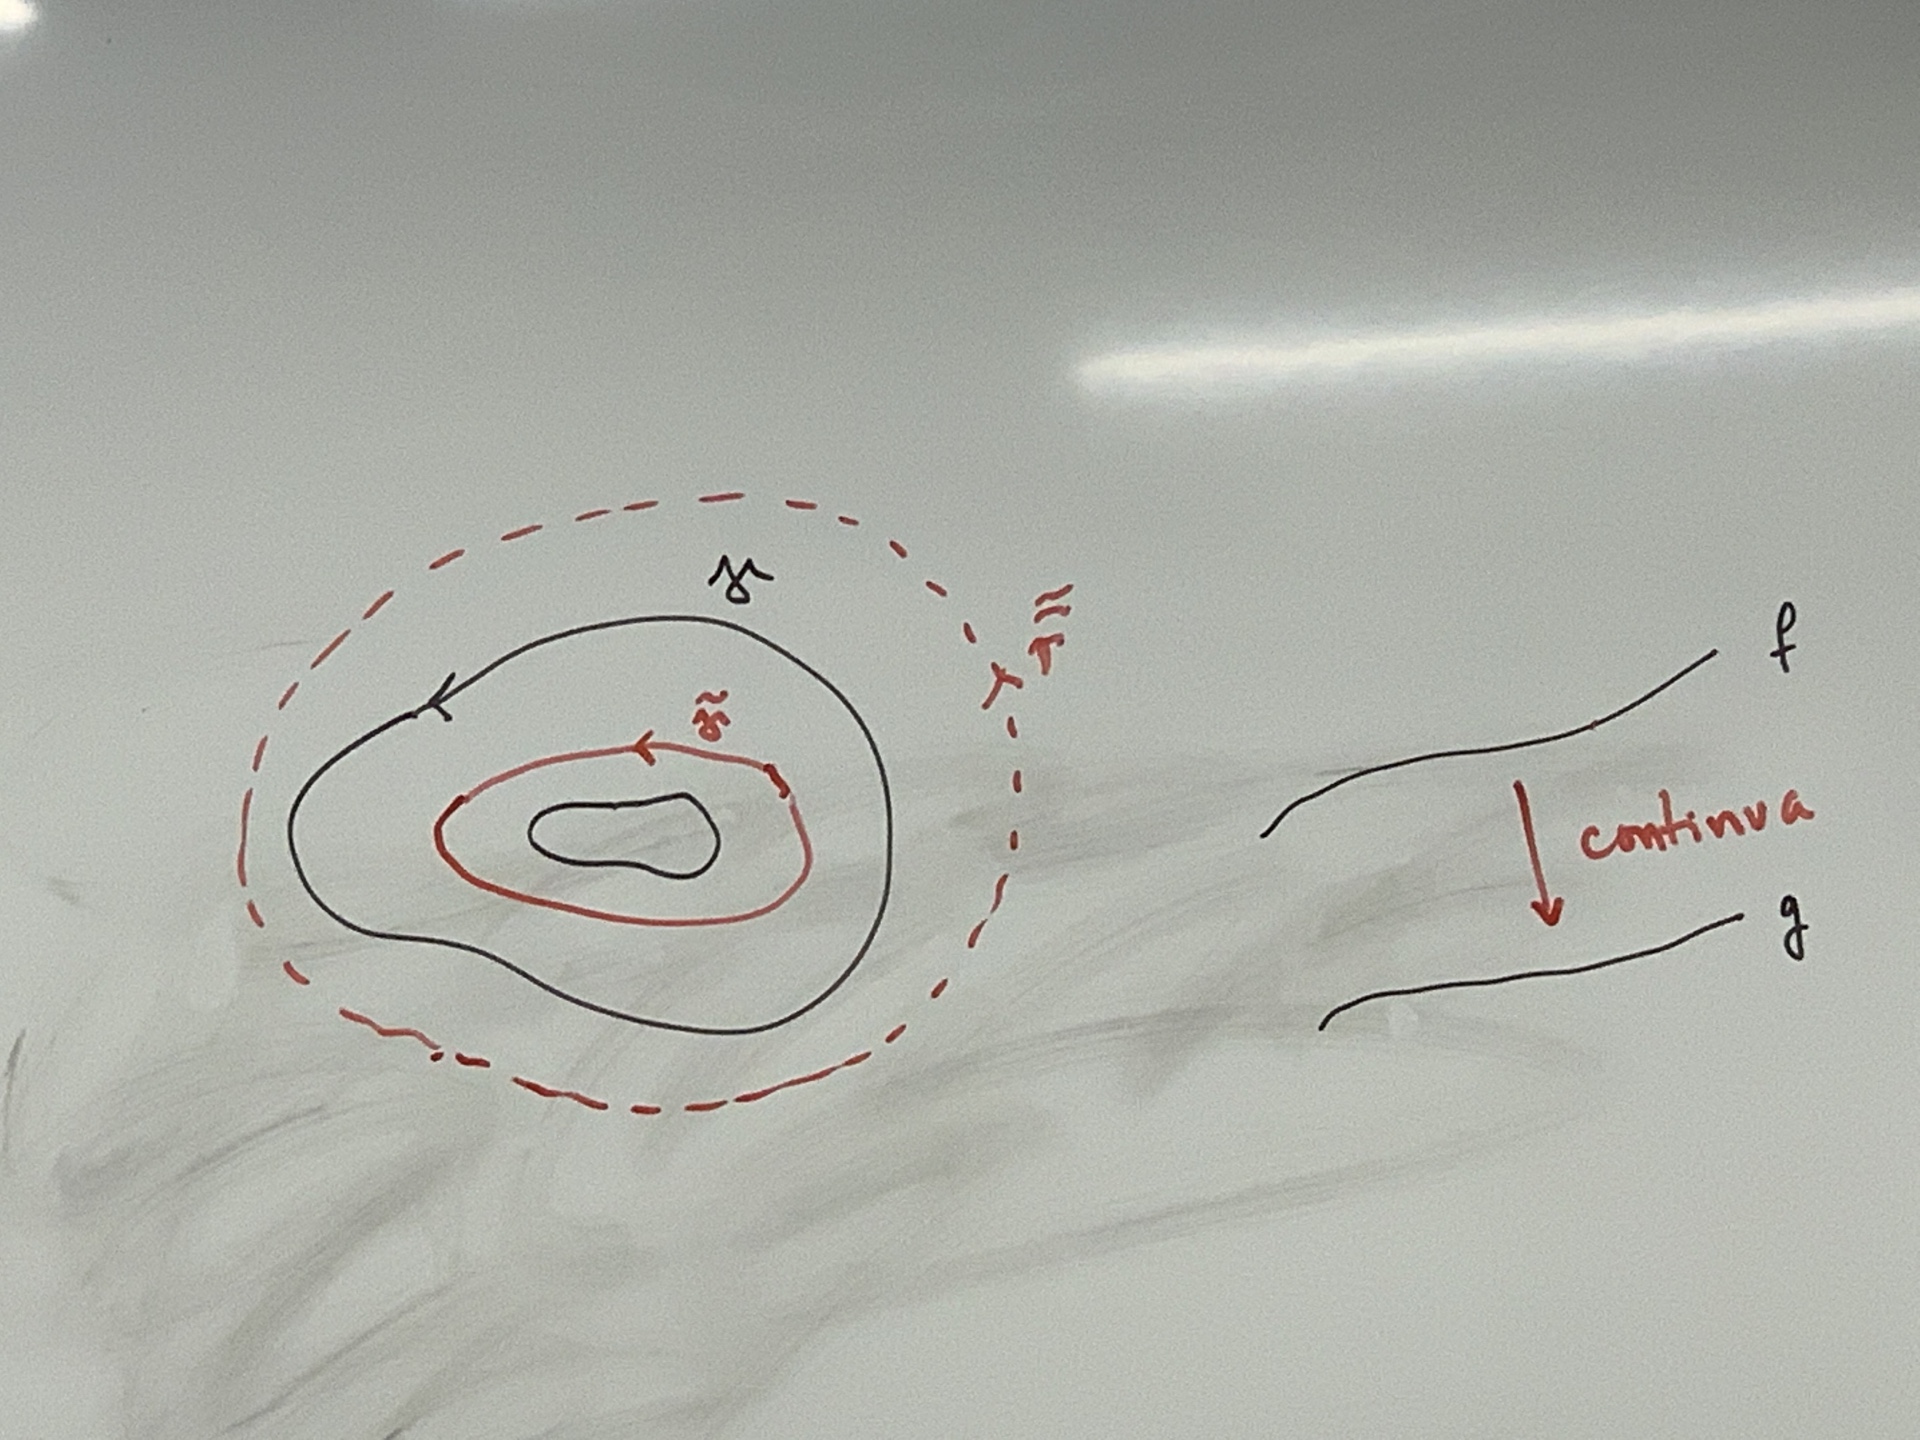 γ
γ̃
f
continua
g